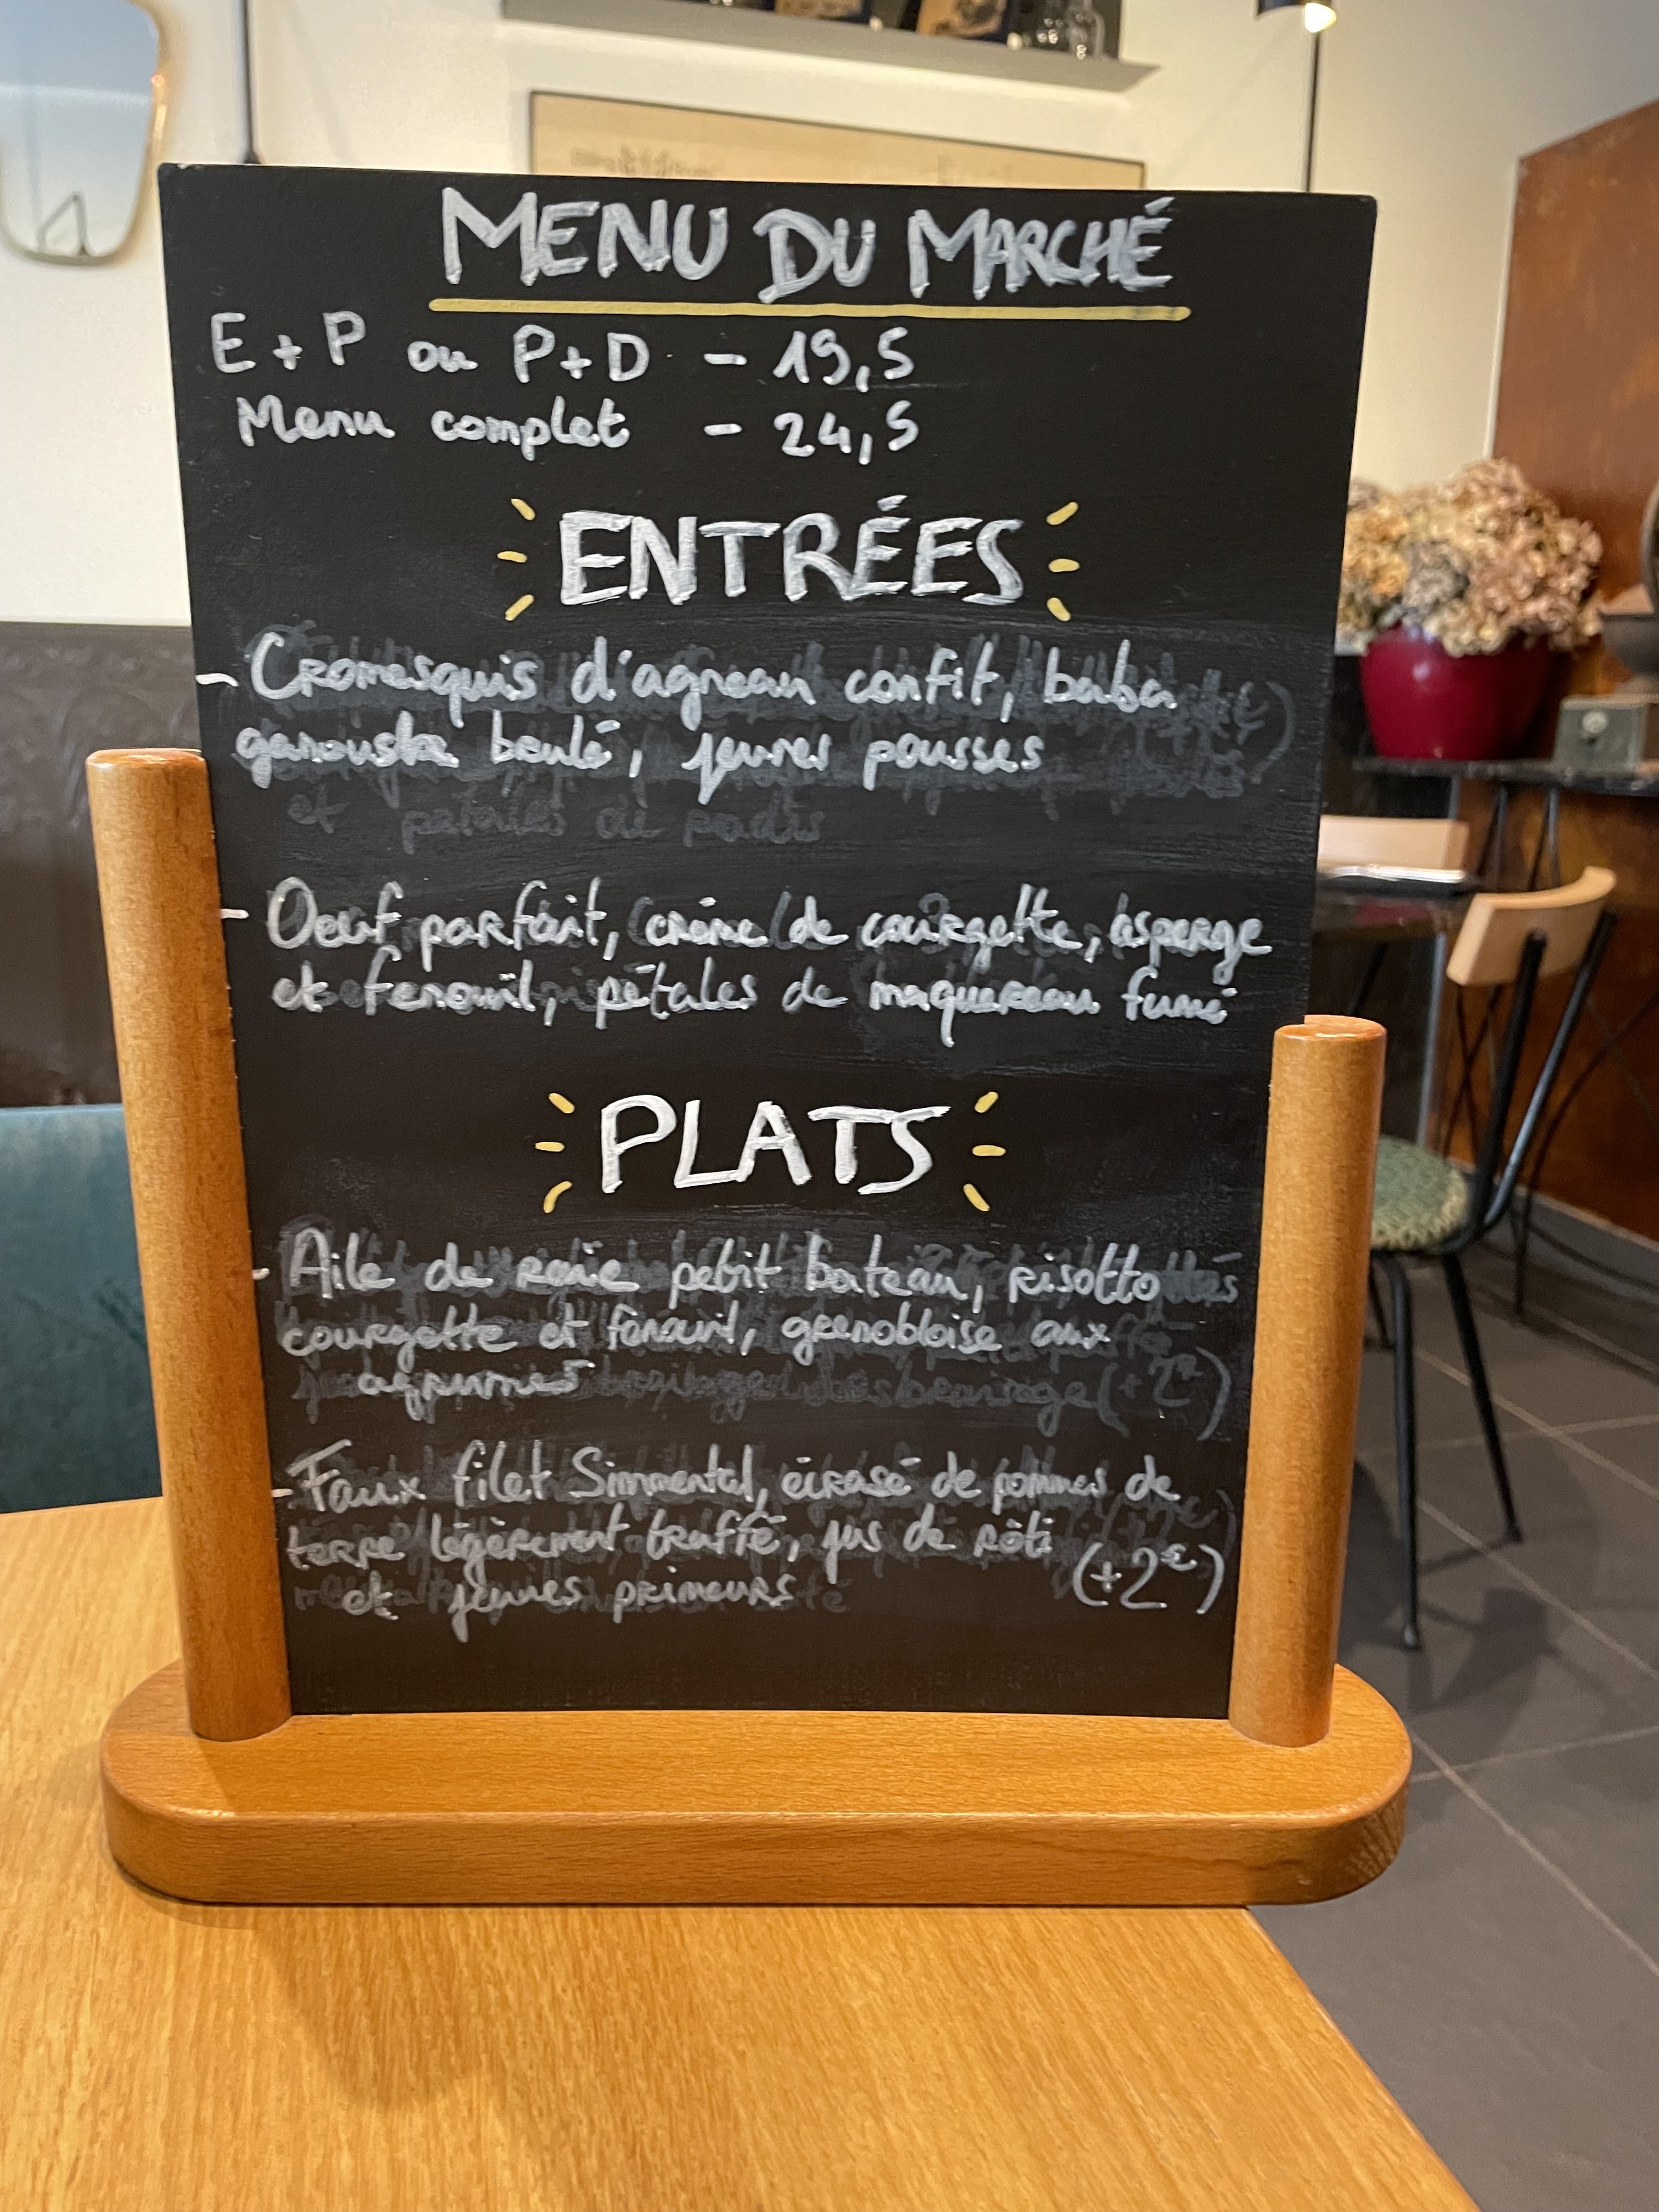 MENU DU MARCHÉ
E + P ou P + D - 19,5
Menu complet - 24,5
ENTRÉES
- Cromesquis d'agneau confit, baba
ganoush brulé, jeunes pousses
- Oeuf parfait, crème de courgette, asperge
et fenouil, pétales de maquereau fumé
PLATS
- Aile de raie petit bateau, risotto
courgette et fenouil, grenobloise aux
agrumes
- Faux filet Simmental, écrasé de pommes de
terre légèrement truffé, jus de rôti
et jeunes primeurs (+2€)